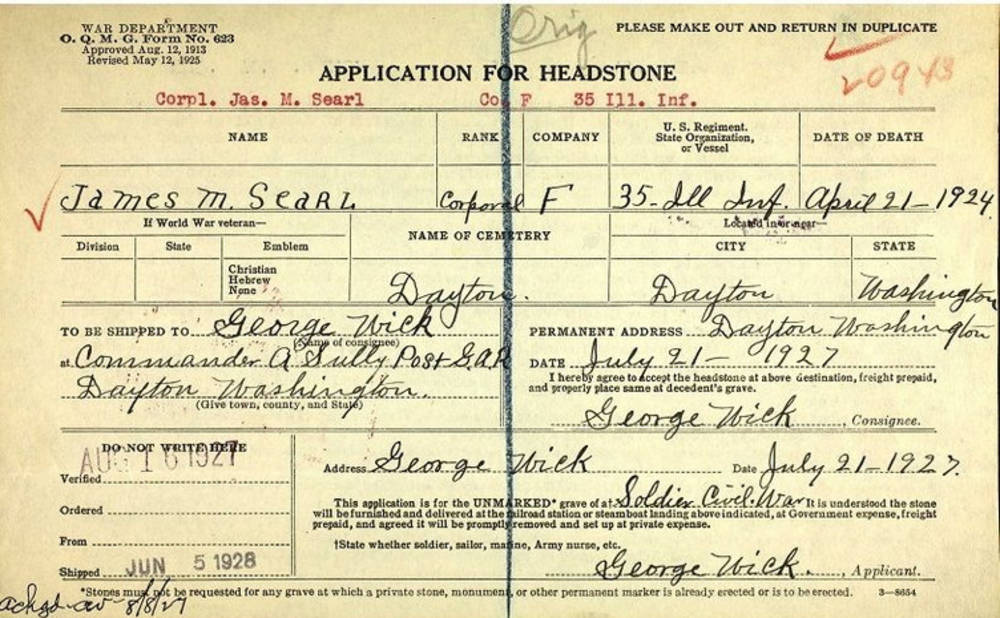 WAR DEPARTMENT
O. Q. M. G. Form No. 623
Approved Aug. 12, 1913
Revised May 12, 1925
Orig
PLEASE MAKE OUT AND RETURN IN DUPLICATE
20943
APPLICATION FOR HEADSTONE
Corpl. Jas. M. Searl Co. F 35 Ill. Inf.
NAME RANK COMPANY U. S. Regiment. State Organization, or Vessel DATE OF DEATH
James M. Searl Corporal F 35 - Ill Inf. April 21 - 1924
If World War veteran— NAME OF CEMETERY Located in or near—
Division State Emblem CITY STATE
Christian
Hebrew
None
Dayton. Dayton Washington
TO BE SHIPPED TO George Wick
(Name of consignee)
at Commander A Sully Post G.A.R
Dayton Washington.
(Give town, county, and State)
PERMANENT ADDRESS Dayton Washington
DATE July 21 - 1927
I hereby agree to accept the headstone at above destination, freight prepaid,
and properly place same at decedent's grave.
George Wick, Consignee.
DO NOT WRITE HERE
AUG 16 1927
Verified
Ordered
From
Shipped JUN 5 1928
Address George Wick Date July 21 - 1927.
This application is for the UNMARKED* grave of a† Soldier Civil War It is understood the stone
will be furnished and delivered at the railroad station or steamboat landing above indicated, at Government expense, freight
prepaid, and agreed it will be promptly removed and set up at private expense.
†State whether soldier, sailor, marine, Army nurse, etc.
George Wick, Applicant.
*Stones must not be requested for any grave at which a private stone, monument, or other permanent marker is already erected or is to be erected. 3—8654
8/8/27